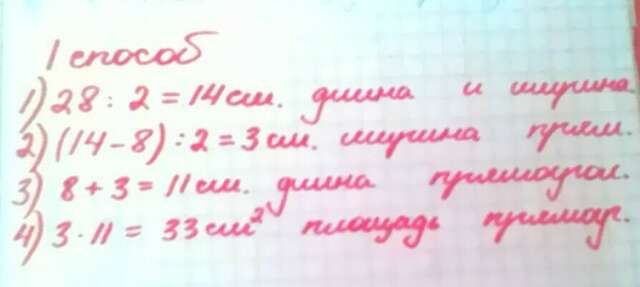 1 способ
1) 28 : 2 = 14 см. длина и ширина
2) (14 - 8) : 2 = 3 см. ширина прям.
3) 8 + 3 = 11 см. длина прямоугол.
4) 3 · 11 = 33 см² площадь прямоуг.